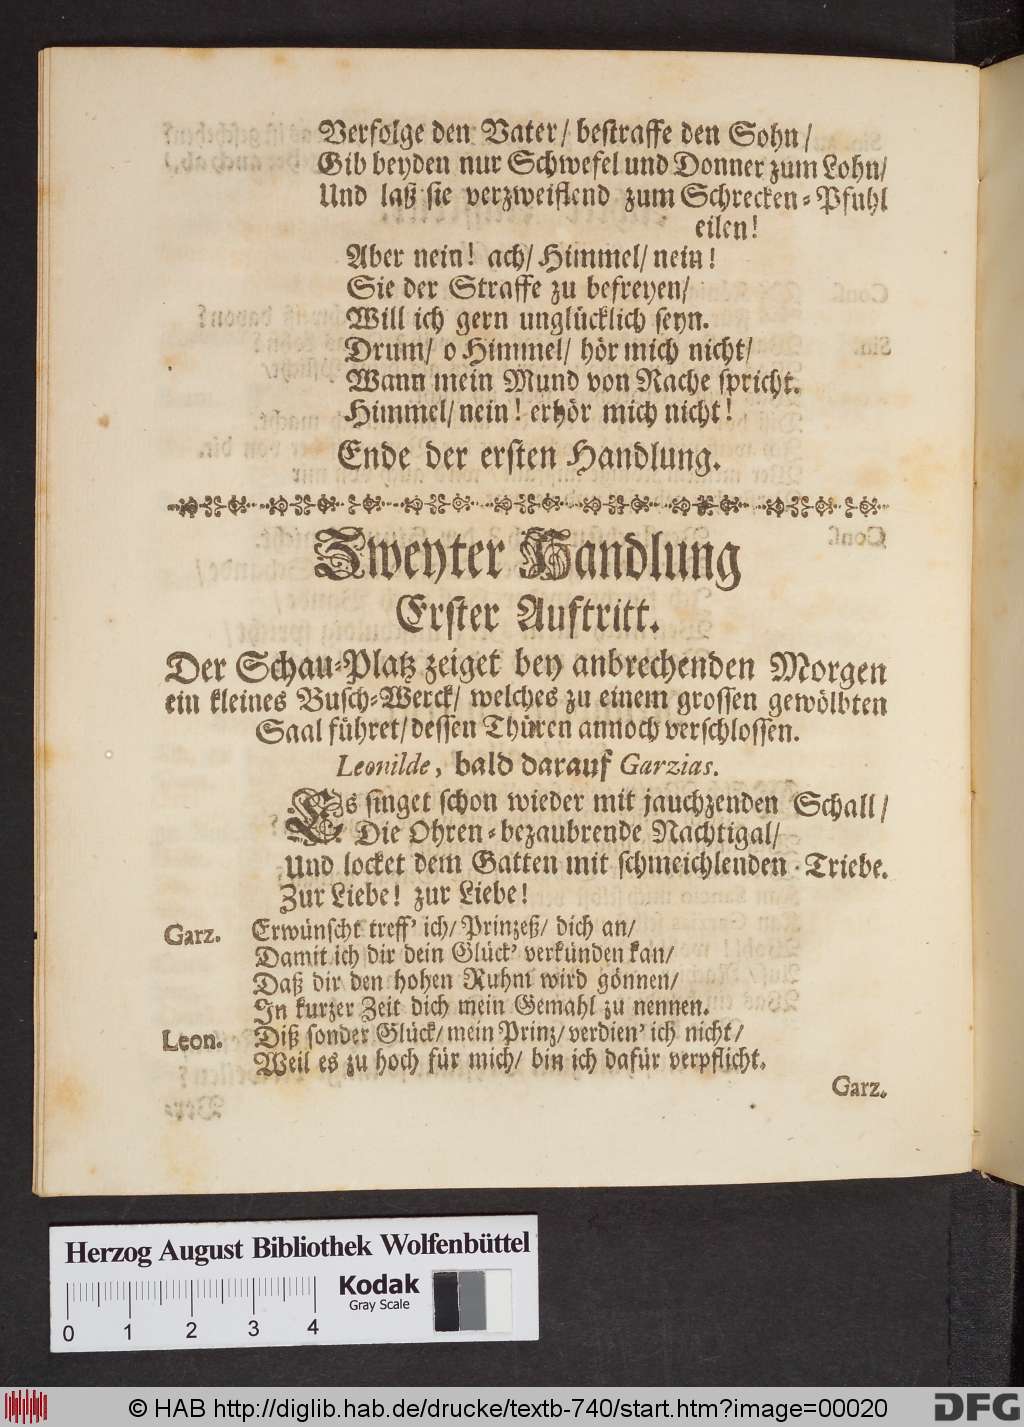 Verfolge den Vater/ bestraffe den Sohn/
Gib beyden nur Schwefel und Donner zum Lohn/
Und laß sie verzweiflend zum Schrecken-Pfuhl
eilen!
Aber nein! ach/ Himmel/ nein!
Sie der Straffe zu befreyen/
Will ich gern unglücklich seyn.
Drum/ o Himmel/ hör mich nicht/
Wann mein Mund von Rache spricht.
Himmel/ nein! erhör mich nicht!
Ende der ersten Handlung.
Zweyter Handlung
Erster Auftritt.
Der Schau-Platz zeiget bey anbrechenden Morgen
ein kleines Busch-Werck/ welches zu einem grossen gewölbten
Saal führet/ dessen Thüren annoch verschlossen.
Leonilde, bald darauf Garzias.
Es singet schon wieder mit jauchzenden Schall/
Die Ohren-bezaubrende Nachtigal/
Und locket dem Gatten mit schmeichlenden Triebe.
Zur Liebe! zur Liebe!
Garz. Erwünscht treff' ich/ Prinzeß/ dich an/
Damit ich dir dein Glück' verkünden kan/
Daß dir den hohen Ruhm wird gönnen/
In kurzer Zeit dich mein Gemahl zu nennen.
Leon. Diß sonder Glück/ mein Prinz/ verdien' ich nicht/
Weil es zu hoch für mich/ bin ich dafür verpflicht.
Garz.
Herzog August Bibliothek Wolfenbüttel
Kodak
Gray Scale
0 1 2 3 4
© HAB http://diglib.hab.de/drucke/textb-740/start.htm?image=00020
DFG